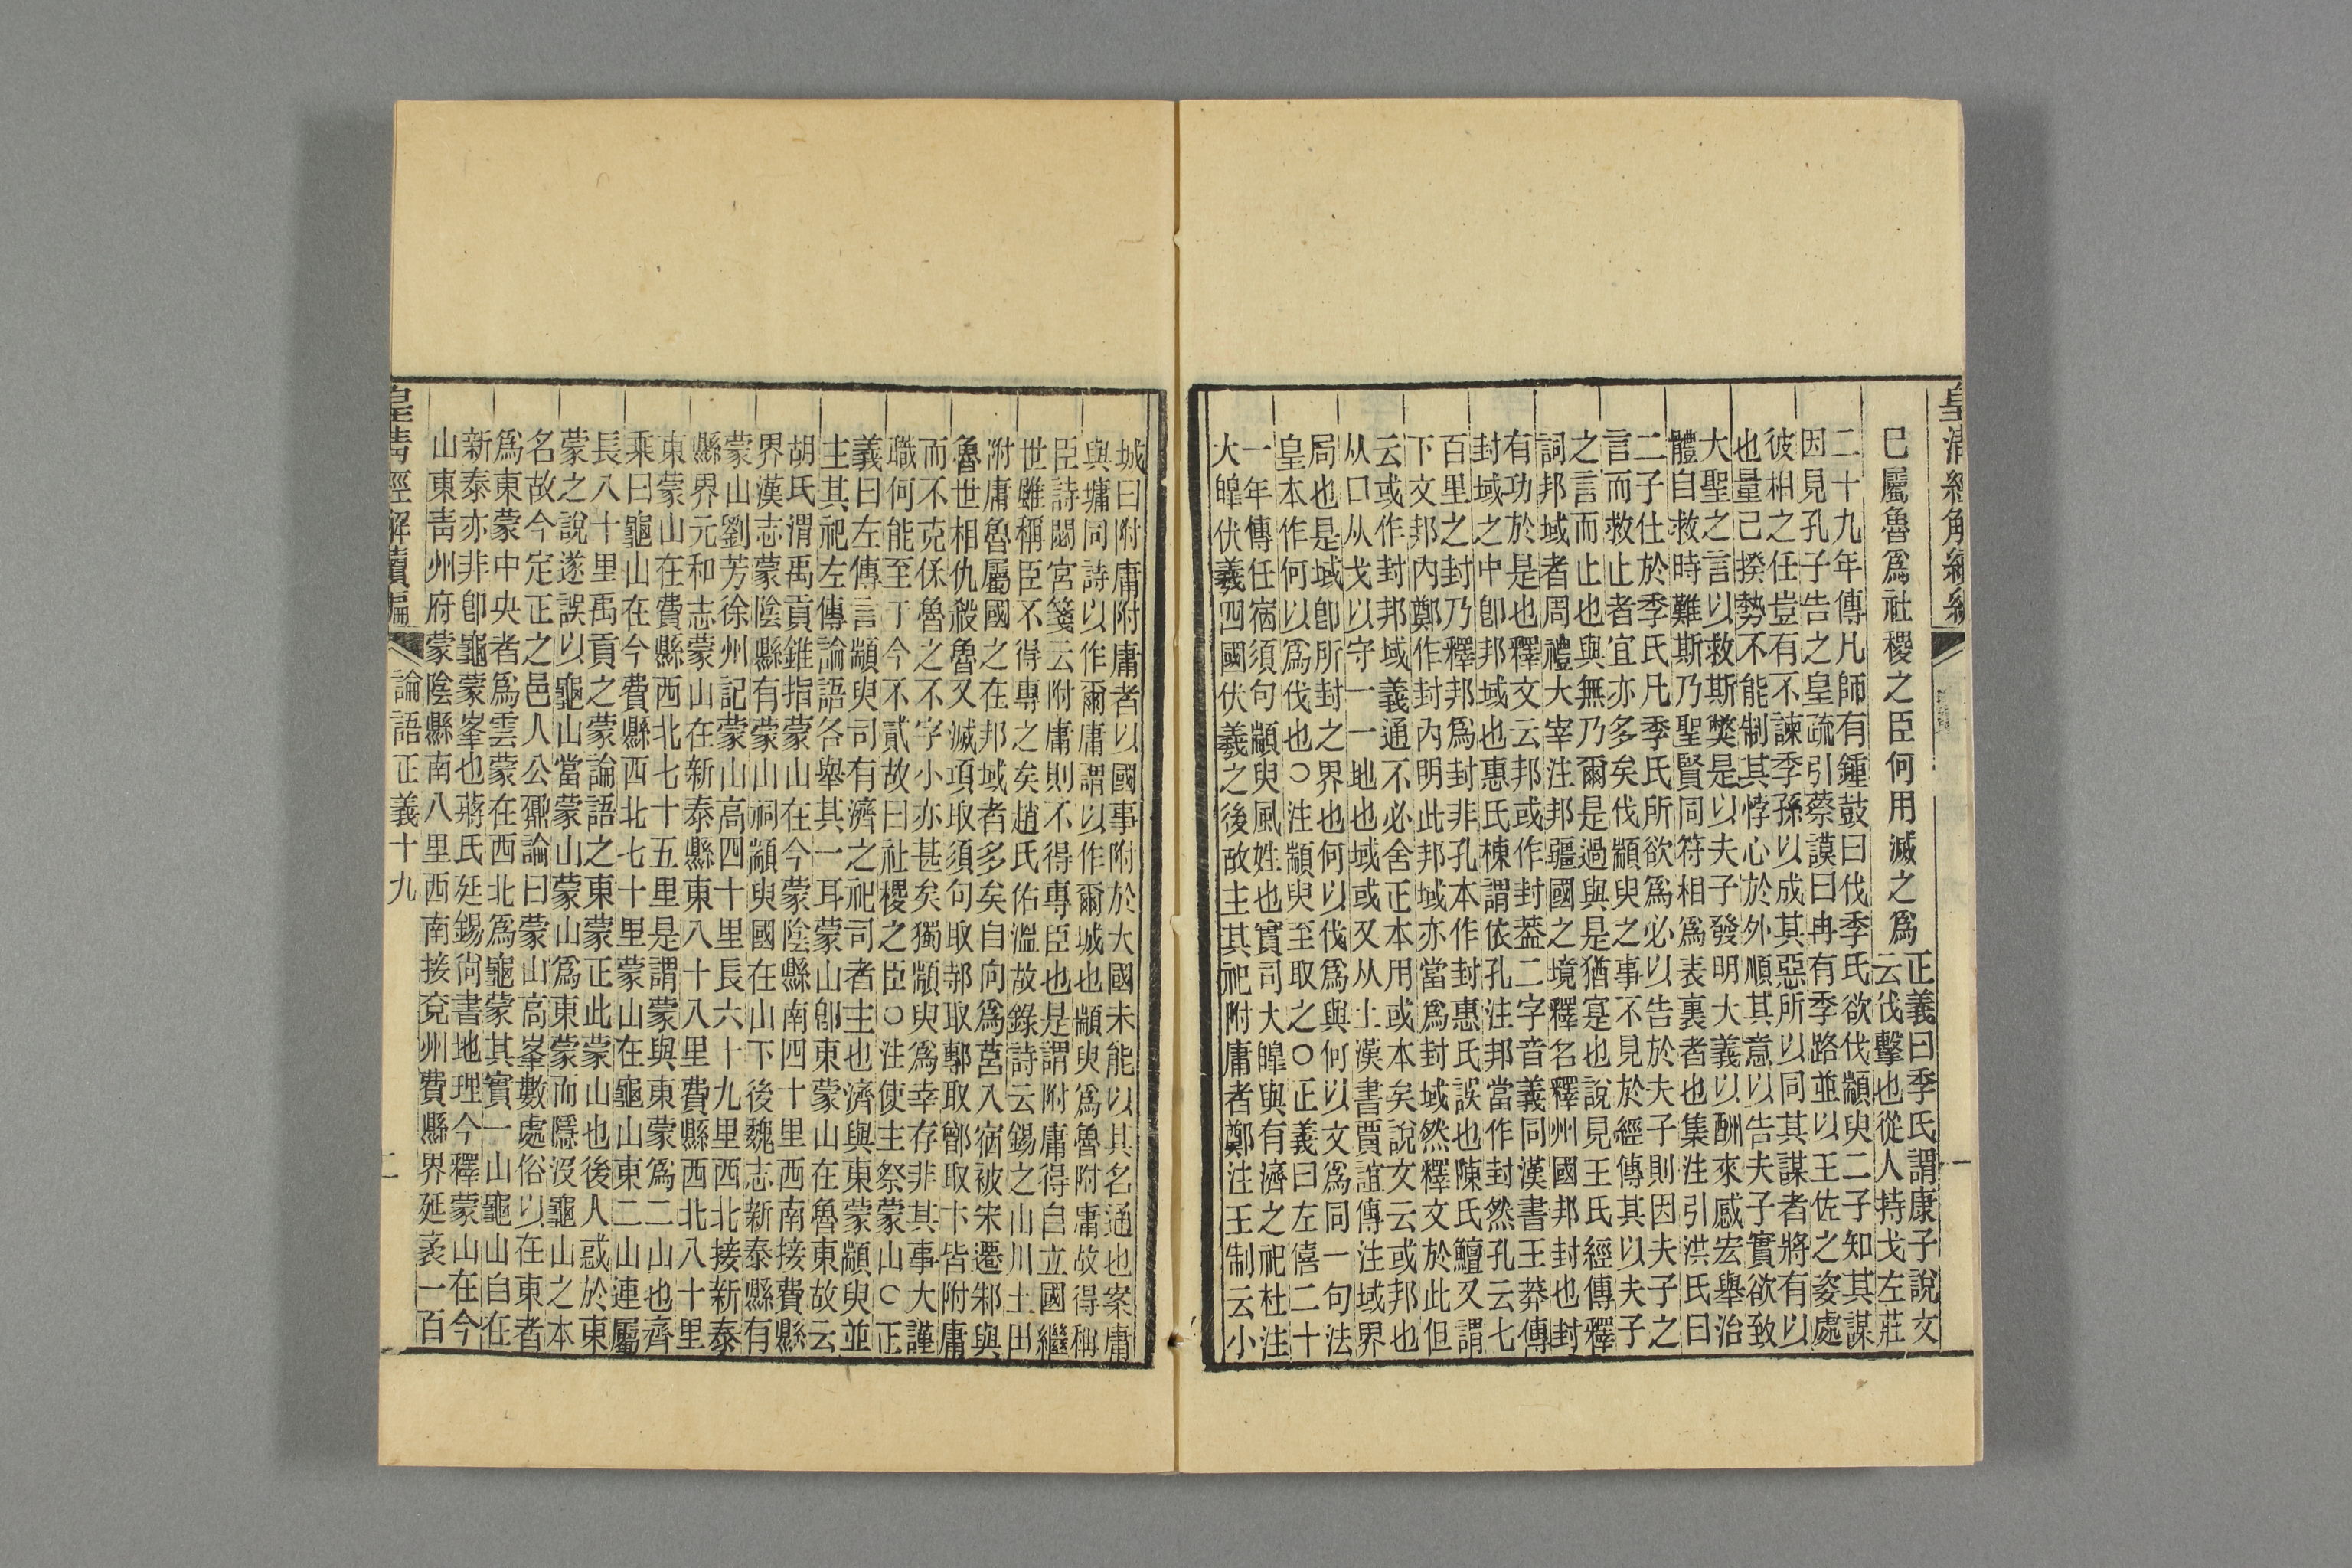 皇清經解續編
已屬魯爲社稷之臣何用滅之爲
正義曰季氏謂康子說文
云伐擊也從人持戈左莊
二十九年傳凡師有鍾鼓曰伐季氏欲伐顓臾二子知其謀
因見孔子告之皇疏引蔡謨曰冉有季路並以王佐之姿處
彼相之任豈有不諫季孫以成其惡所以同其謀者將有以
也量己揆勢不能制其悖心於外順其意以告夫子實欲致
大聖之言以救斯獘是以夫子發明大義以酬來感宏舉治
體自救時難斯乃聖賢同符相爲表裏者也集注引洪氏曰
二子仕於季氏凡季氏所欲爲必以告於夫子則因夫子之
言而救止者宜亦多矣伐顓臾之事不見於經傳其以夫子
之言而止也與無乃爾是過與是猶寔也說見王氏經傳釋
詞邦域者周禮大宰注邦疆國之境釋名釋州國邦封也封
有功於是也釋文云邦或作封葢二字音義同漢書王莽傳
封域之中卽邦域也惠氏棟謂依孔注邦當作封然孔云七
百里之封乃釋邦爲封非孔本作封惠氏誤也陳氏鱣又謂
下文邦內鄭作封內明此邦域亦當爲封域然釋文於此但
云或作封邦域義通不必舍正本用或本矣說文云或邦也
从口从戈以守一一地也域或又从土漢書賈誼傳注域界
局也是域卽所封之界也何以伐爲與何以文爲同一句法
皇本作何以爲伐也○注顓臾至取之○正義曰左僖二十
一年傳任宿須句顓臾風姓也實司大皥與有濟之祀杜注
大皥伏羲四國伏羲之後故主其祀附庸者鄭注王制云小
城曰附庸附庸者以國事附於大國未能以其名通也案庸
與墉同詩以作爾庸謂以作爾城也顓臾爲魯附庸故得稱
臣詩閟宮箋云附庸則不得專臣也是謂附庸得自立國繼
世雖稱臣不得專之矣趙氏佑溫故錄詩云錫之山川土田
附庸魯屬國之在邦域者多矣自向爲莒入宿被宋遷邾與
魯世相仇殺魯又滅項取須句取邿取鄟取鄫取卞皆附庸
而不克保魯之不字小亦甚矣獨顓臾爲幸存非其事大謹
職何能至于今不貳故曰社稷之臣○注使主祭蒙山○正
義曰左傳言顓臾司有濟之祀司者主也濟與東蒙顓臾並
主其祀左傳論語各舉其一耳蒙山卽東蒙山在魯東故云
胡氏渭禹貢錐指蒙山在今蒙陰縣南四十里西南接費縣
界漢志蒙陰縣有蒙山祠顓臾國在山下後魏志新泰縣有
蒙山劉芳徐州記蒙山高四十里長六十九里西北接新泰
縣界元和志蒙山在新泰縣東八十八里費縣西北八十里
東蒙山在費縣西北七十五里是謂蒙與東蒙爲二山也齊
乘曰龜山在今費縣西北七十里蒙山在龜山東二山連屬
長八十里禹貢之蒙論語之東蒙正此蒙山也後人惑於東
蒙之說遂誤以龜山當蒙山蒙山爲東蒙而隱沒龜山之本
名故今定正之邑人公鼐論曰蒙山高峯數處俗以在東者
爲東蒙中央者爲雲蒙在西北爲龜蒙其實一山龜山自在
新泰亦非卽龜蒙峯也蔣氏廷錫尙書地理今釋蒙山在今
山東靑州府蒙陰縣南八里西南接兗州費縣界延袤一百
皇淸經解續編
論語正義十九
二